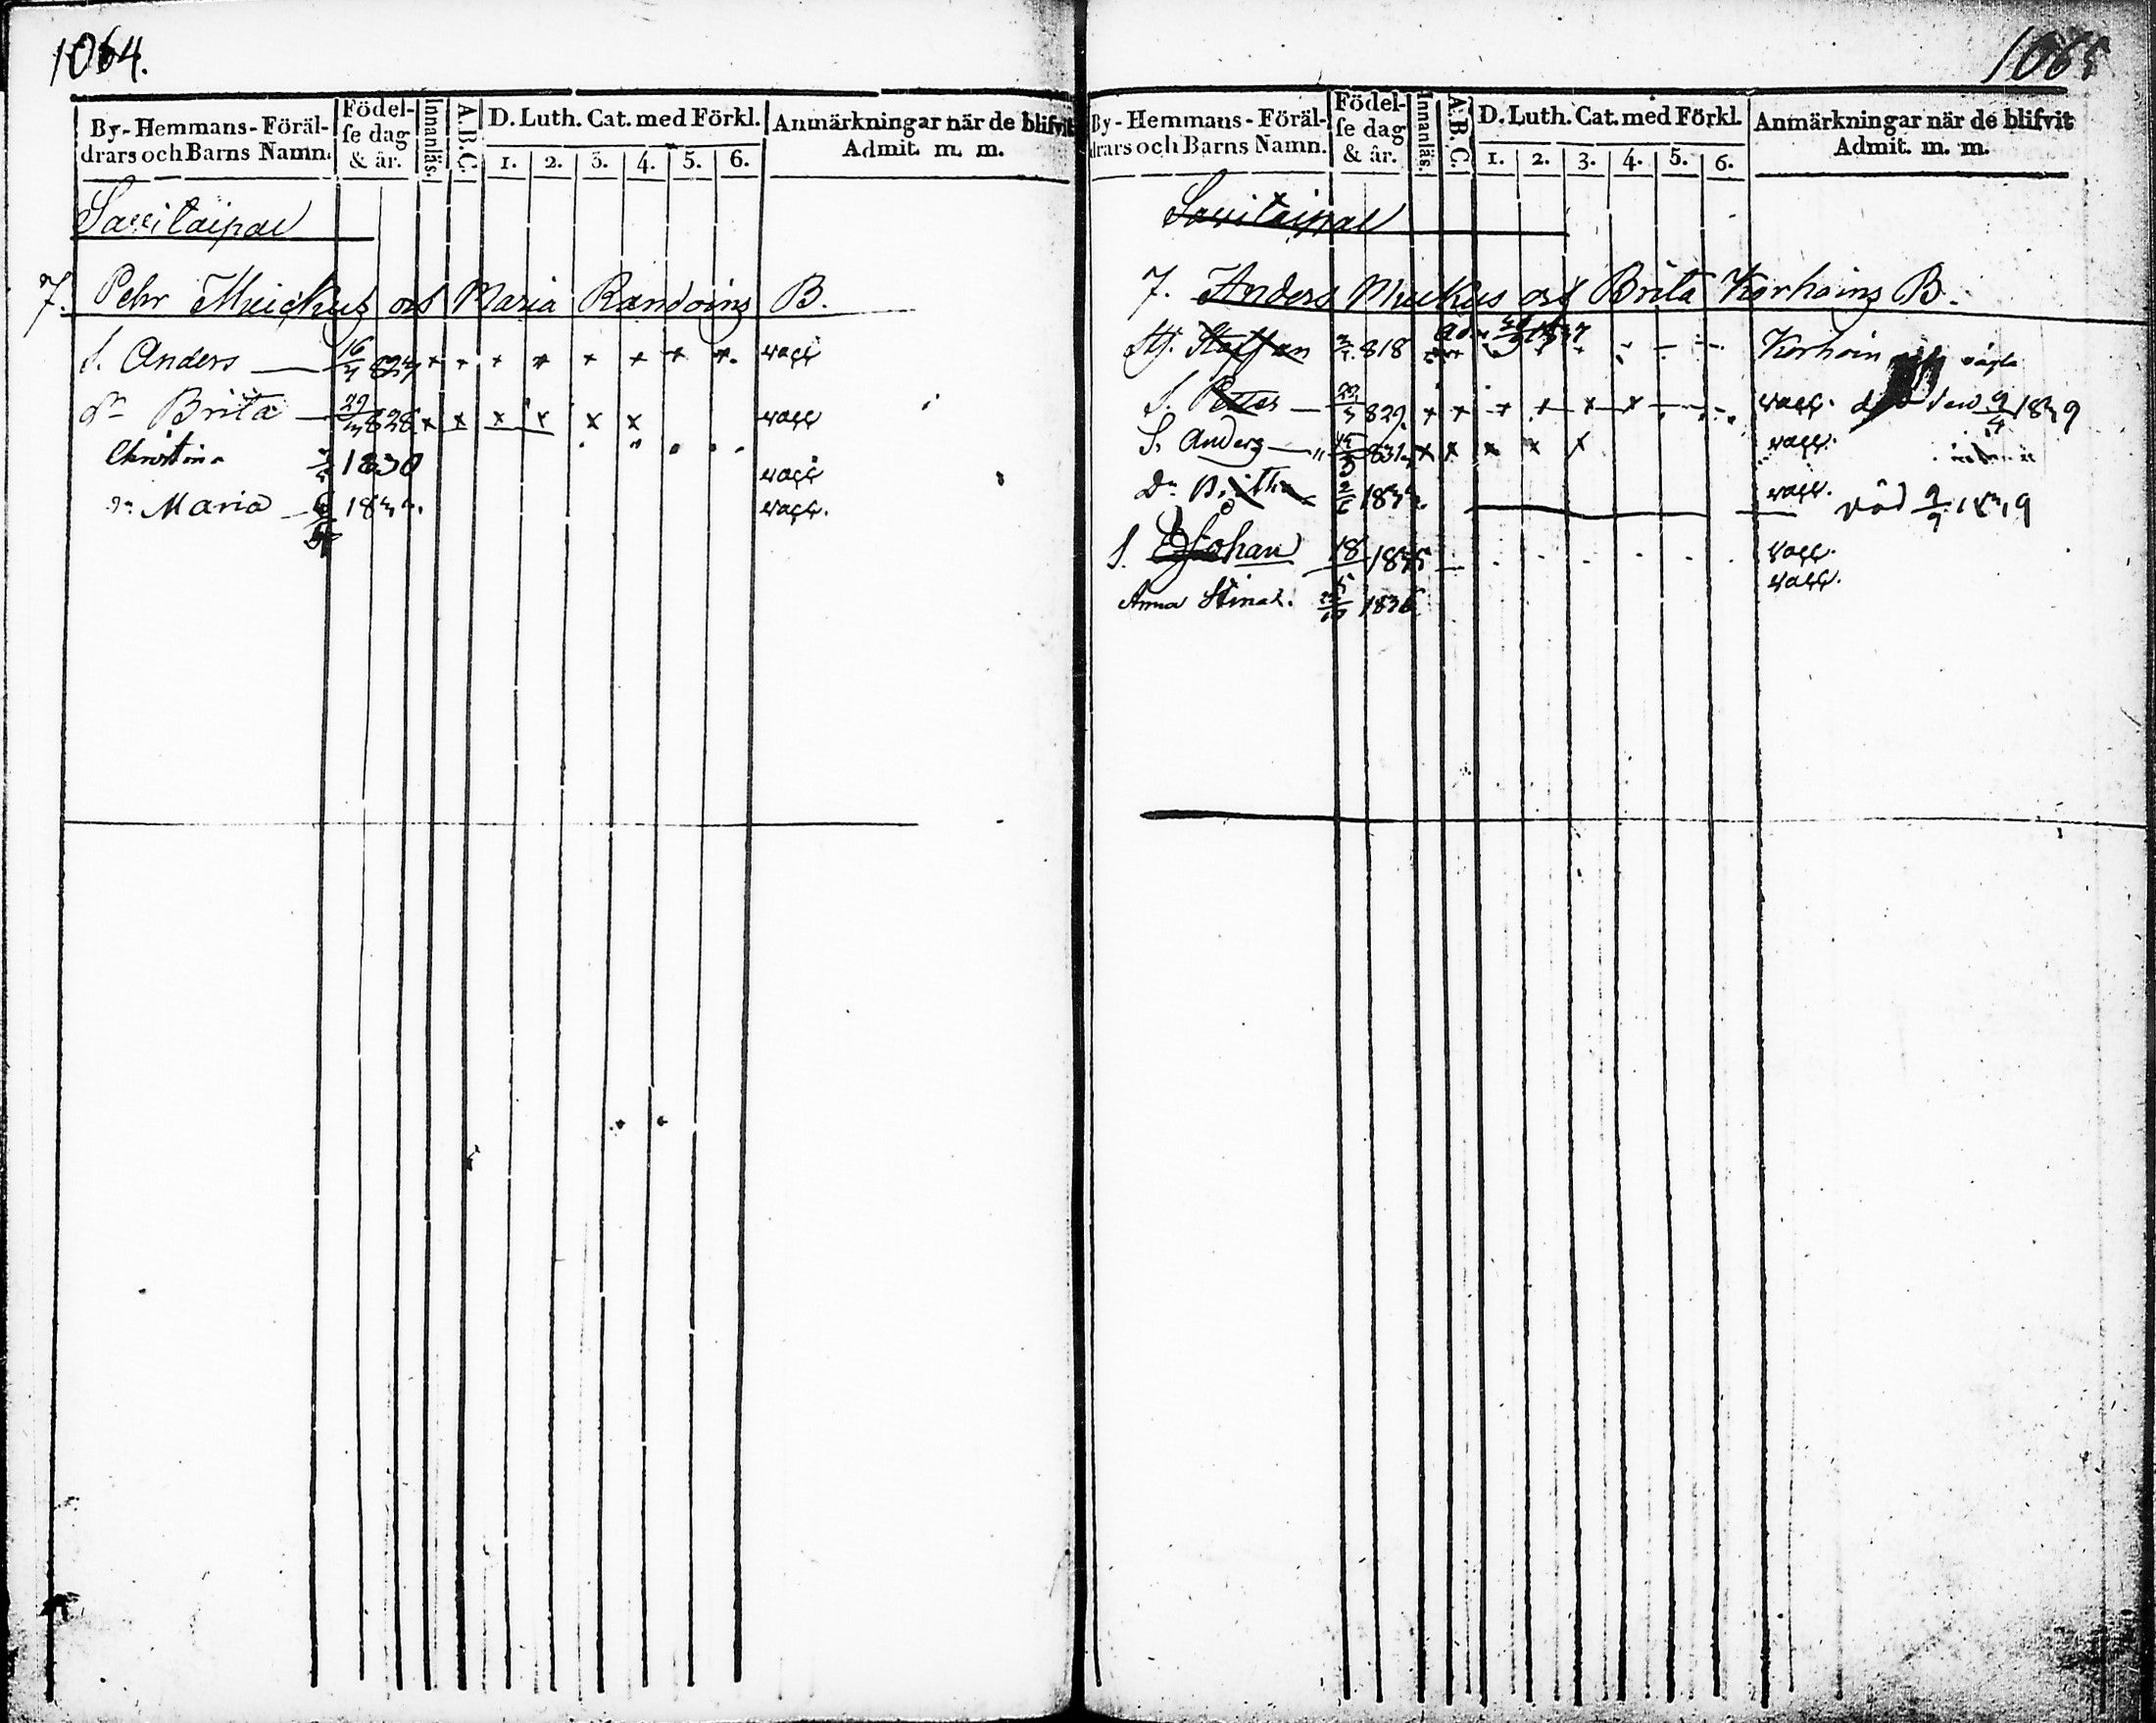 1064.
By-Hemmans-Föräl-
drars och Barns Namn.
Födel-
se dag
& år.
Innanläs.
A.B.C.
D. Luth. Cat. med Förkl.
1. 2. 3. 4. 5. 6.
Anmärkningar när de blifvit
Admit. m. m.
Savitaipal
7. Pehr Muckus Maria Randoins B.
S. Anders 16/7 827 x x x x x x x x. vacc
Dr Brita 29/ 828 x x x x x x vacc
Christina 1830 vacc
Dr Maria 183 vacc.
1065
By-Hemmans-Föräl-
drars och Barns Namn.
Födel-
se dag
& år.
Innanläs.
A.B.C.
D. Luth. Cat. med Förkl.
1. 2. 3. 4. 5. 6.
Anmärkningar när de blifvit
Admit. m. m.
Savitaipal
7. Anders Muckus Brita Korhoins B.
Staffan 818 Korhoin
S. Petter 829 x x x x x x vacc. död den 9/4 1839
S. Anders 831 x x x x x vacc.
Dr Britha 183 vacc. död 9/9 1839
S. Johan 18/5 183 vacc.
Anna Stina 1836 vacc.